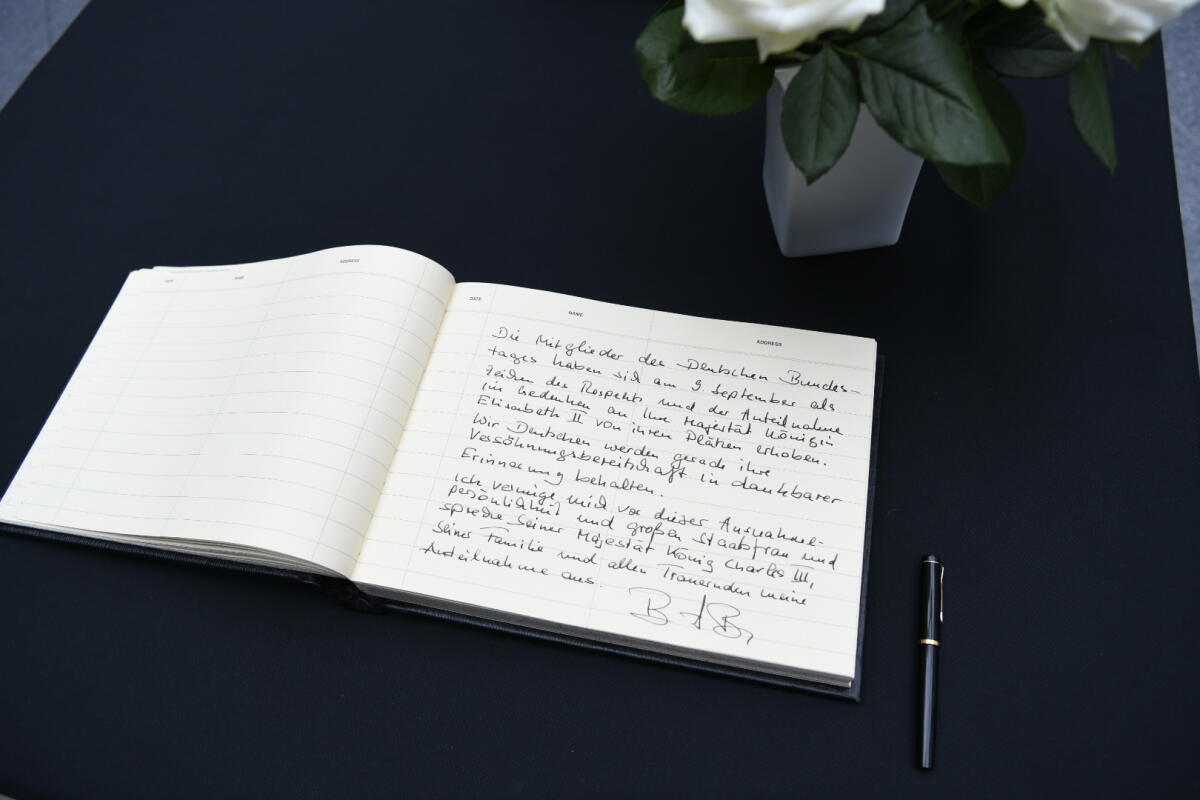 ADDRESS
NAME
DATE
NAME
ADDRESS
Die Mitglieder des Deutschen Bundes-
tages haben sich am 9. September als
Zeichen des Respekts und der Anteilnahme
im Gedenken an Ihre Majestät Königin
Elisabeth II von ihren Plätzen erhoben.
Wir Deutschen werden gerade ihre
Versöhnungsbereitschaft in dankbarer
Erinnerung behalten.
Ich verneige mich vor dieser Ausnahme-
persönlichkeit und großen Staatsfrau und
spreche Seiner Majestät König Charles III,
Seiner Familie und allen Trauernden meine
Anteilnahme aus.